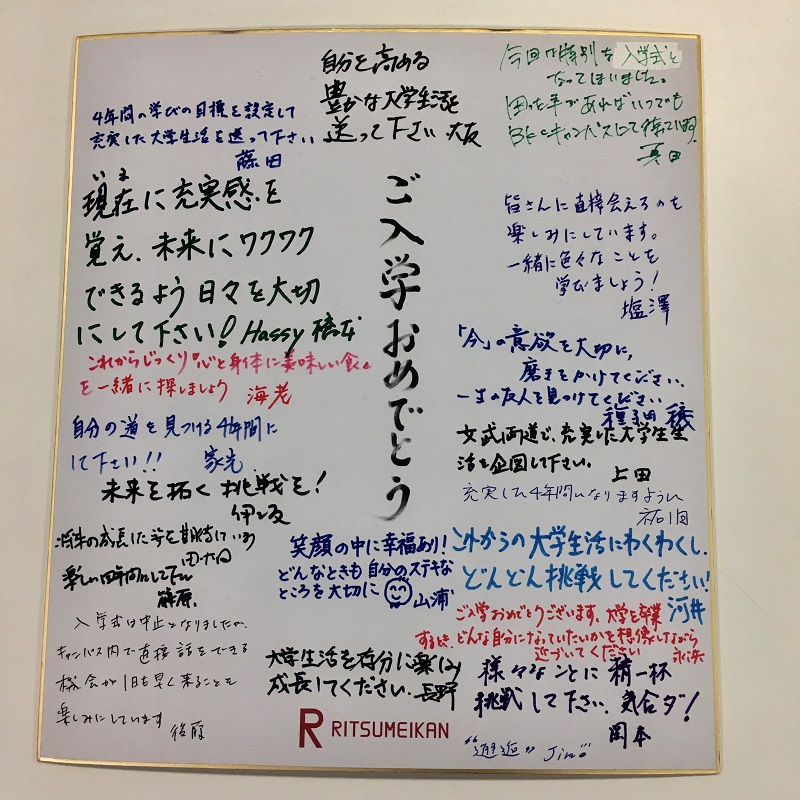 ご入学おめでとう
自分を高める
豊かな大学生活を
送って下さい 大友
今回は特別な入学式と
なってしまいました。
困った事があればいつでも
BKCキャンパスにて待ってます。
真田
4年間の学びの目標を設定して
充実した大学生活を送って下さい
藤田
いま
現在に充実感を
覚え、未来にワクワク
できるよう日々を大切
にして下さい! Hassy 橋本
皆さんに直接会えるのを
楽しみにしています。
一緒に色々なことを
学びましょう!
塩澤
これからじっくり『心と身体に美味しい食』
を一緒に探しましょう 海老
「今」の意欲を大切に、
磨きをかけてください。
一生の友人を見つけてください
種子田 穣
自分の道を見つける4年間に
して下さい!! 家光
文武両道で、充実した大学生生
活を企図して下さい。
上田
未来を拓く挑戦を!
伊坂
充実した4年間になりますように
将来の成長した姿を期待している
楽しい四年間にして下さい
藤原
笑顔の中に幸福あり!
どんなときも自分のステキな
ところを大切に 山浦
これからの大学生活にわくわくし、
どんどん挑戦してください!
河井
入学式は中止となりましたが、
キャンパス内で直接話をできる
機会が1日も早く来ることを
楽しみにしています
後藤
ご入学おめでとうございます。大学を卒業
するとき、どんな自分になっていたいかを想像しながら
近づいてください 永浜
大学生活を存分に楽しみ
成長してください。長野
様々なことに精一杯
挑戦して下さい。気合ダ!
岡本
RITSUMEIKAN
"邂逅" Jin